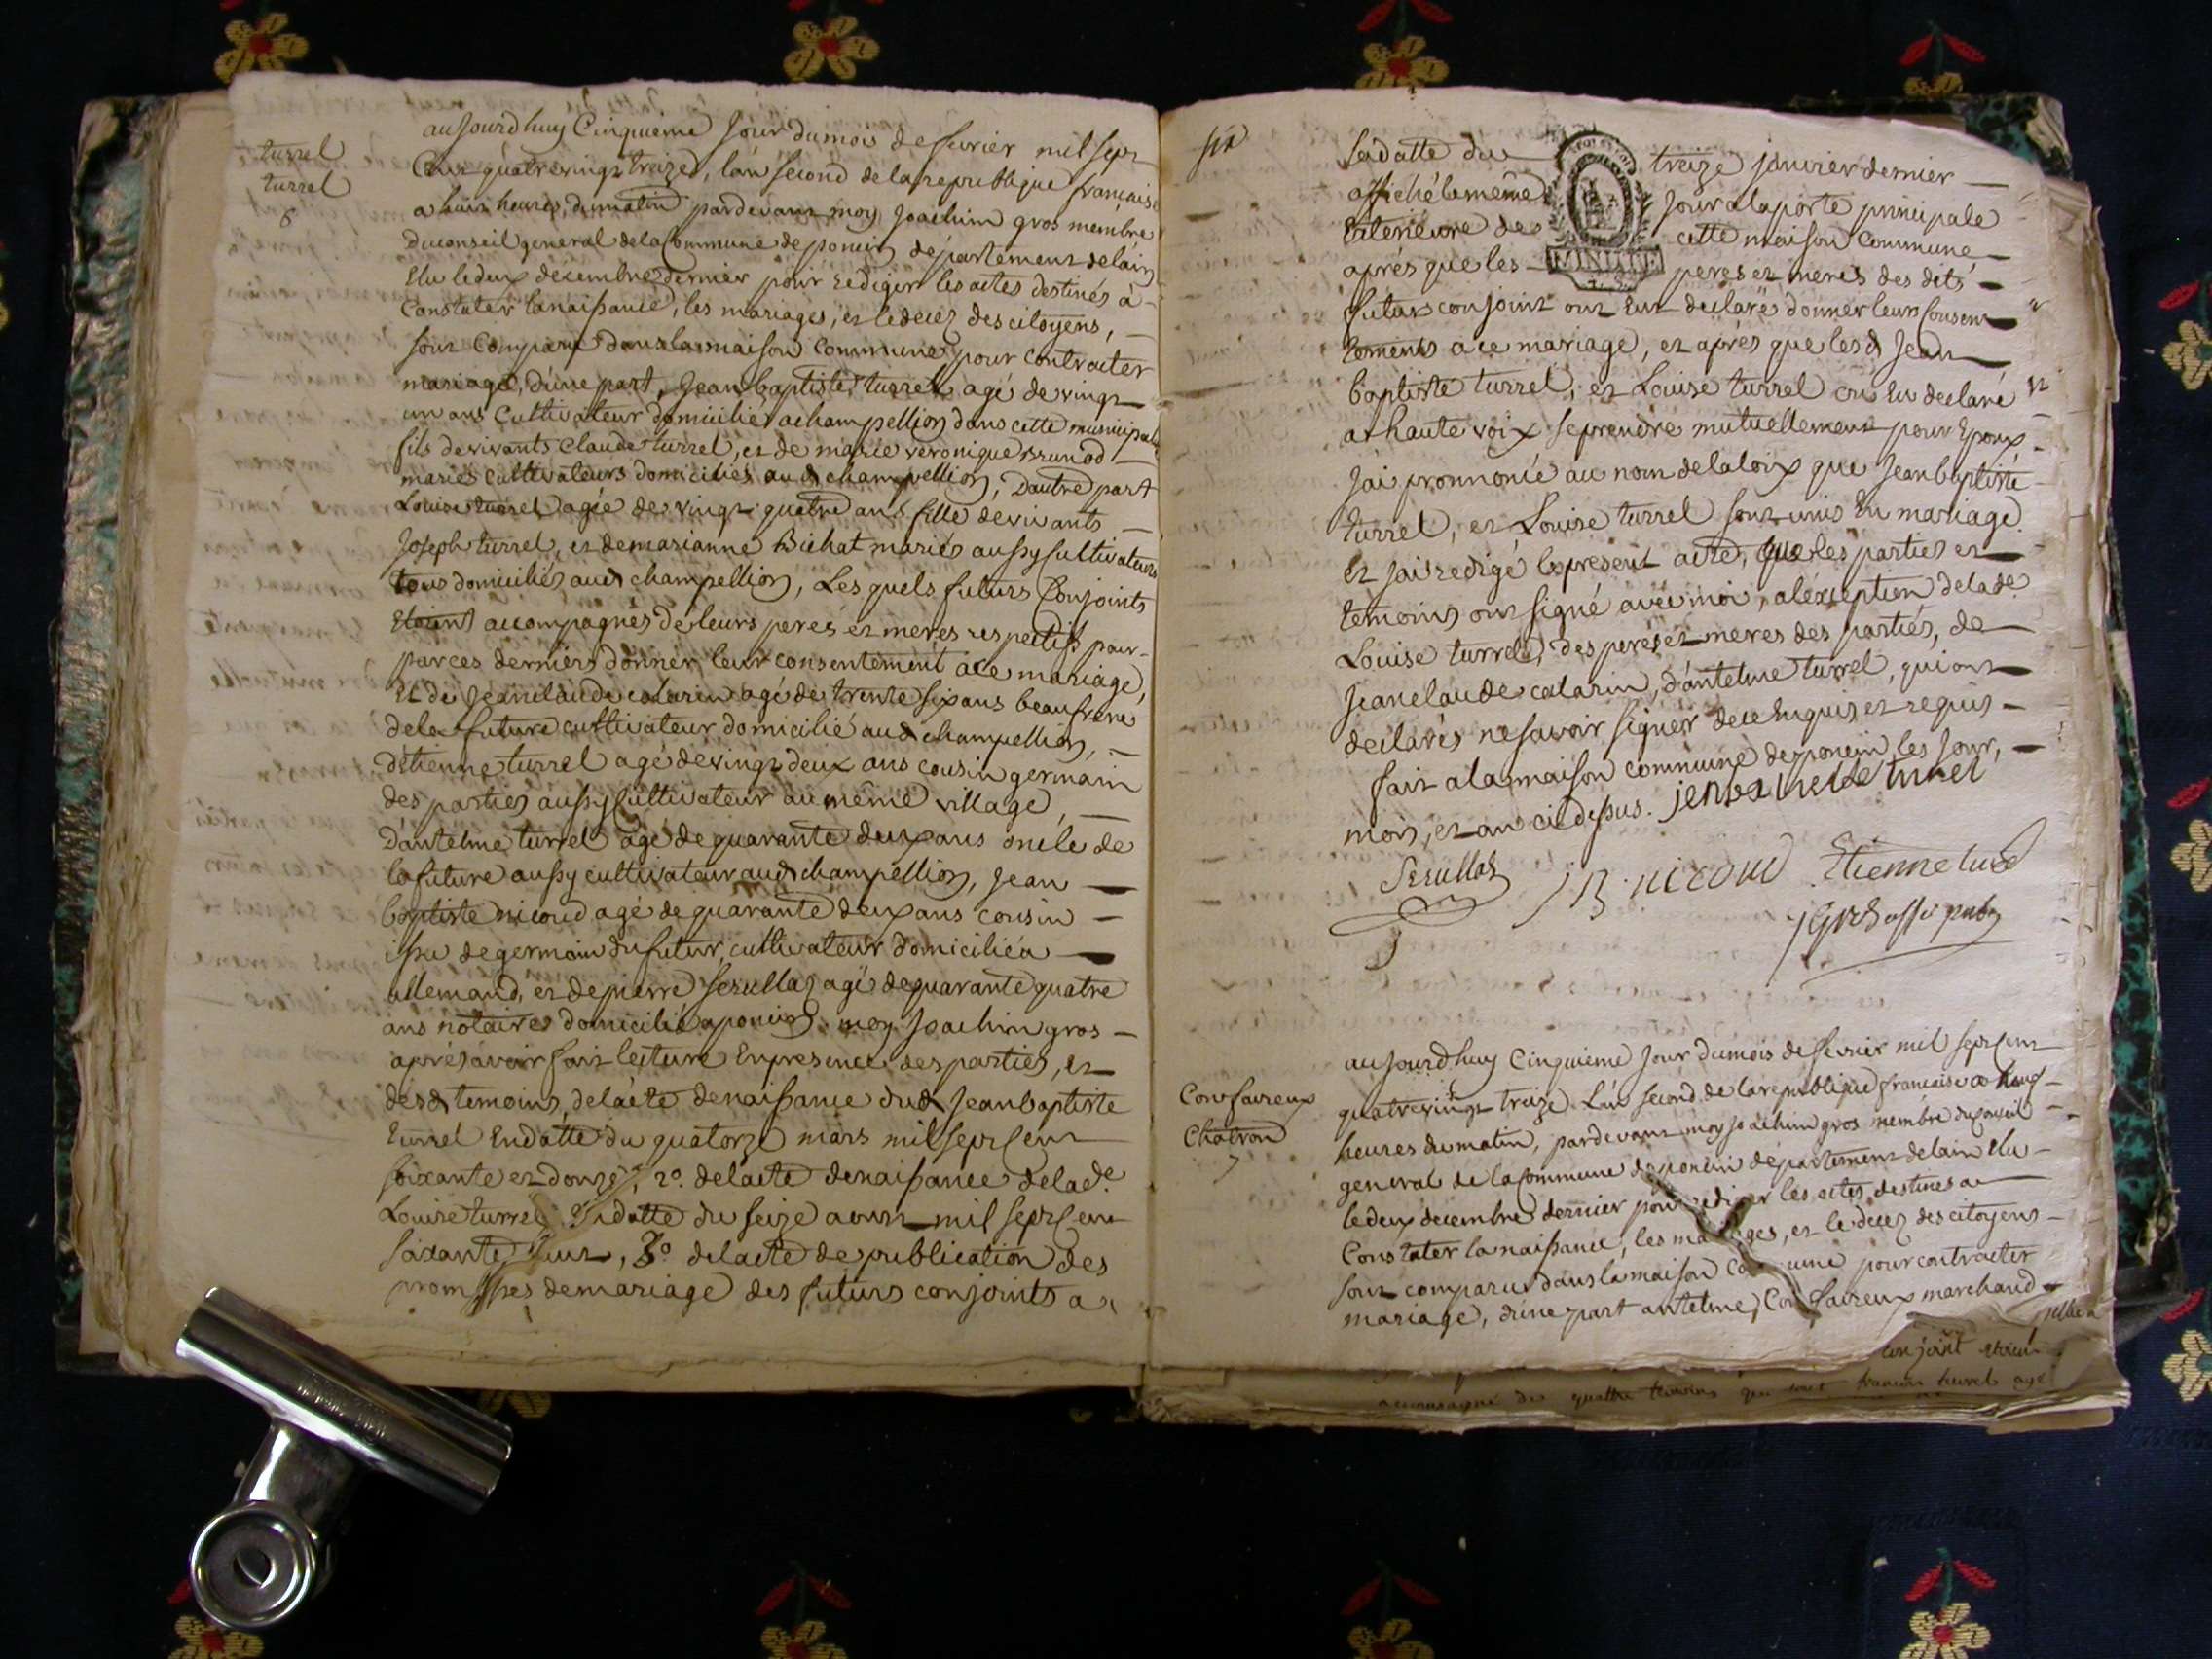 turrel
turrel
6
aujourdhuy Cinquieme jour du mois de fevrier mil sept
Cent quatrevingt treize, l'an second de la republique francaise
a huit heures, du matin pardevant moy Joachim gros membre
du conseil general de la Commune de poncin departement de lain
Elu le deux decembre dernier pour rediger les actes destinés à
Constater la naissance, les mariages, et le decez des citoyens,
sont Comparu dans la maison Commune pour contracter
mariage, d'une part, Jean baptiste turrel agé de vingt
un ans Cultivateur domicilié a champellion dans cette municipalité
fils de vivants Claude turrel, et de marie veronique Brunod
mariés cultivateurs domiciliés aud champellion, Dautre part
Louise turrel agée de vingt quatre ans fille de vivants
Joseph turrel, et de marianne Bichat mariés aussy Cultivateurs
tous domiciliés aud champellion, Les quels futurs Conjoints
Etoient accompagnés de leurs peres et meres respectifs pour
par ces derniers donner leur consentement à ce mariage,
Et de Jean claude calarin agé de trente six ans beaufrere
de la future cultivateur domicilié aud champellion,
d'Etienne turrel agé de vingt deux ans cousin germain
des parties aussy Cultivateur au même village,
D'antelme turrel agé de quarante deux ans oncle de
la future aussy cultivateur aud champellion, Jean
baptiste nicoud agé de quarante deux ans cousin
issu de germain du futur, cultivateur domicilié a
allemand, et de pierre serullaz agé de quarante quatre
ans notaire domicilié a poncin. moy Joachim gros
aprés avoir fait lecture En presence des parties, et
desd temoins, de l'acte de naissance dud Jean baptiste
turrel En datte du quatorze mars mil sept Cent
soixante et douze, 2o. de lacte de naissance de lade
Louise turrel En datte du seize aoust mil sept Cent
soixante huit, 3o de lacte de publication des
promesses de mariage des futurs conjoints a
six
la datte du treize janvier dernier
affiché le même jour a la porte principale
Exterieure de cette maison Commune
MINUTE
aprés que les peres et meres des dits
futurs conjoint ont Eux declaré donner leurs Consen
tements a ce mariage, et aprés que lesd Jean
baptiste turrel, et Louise turrel ont Eu declaré
a haute voix se prendre mutuellement pour Epoux
J'ai pronnoncé au nom de la loix que Jean baptiste
turrel, et Louise turrel sont unis En mariage
Et j'ai redigé le present acte, que les parties et
temoins ont signé avec moi, a l'exception de lade
Louise turrel, des peres et meres des parties, de
Jean claude calarin, d'antelme turrel, qui ont
declarés ne savoir signer de ce Enquis et requis
fait a la maison commune de poncin les jour,
mois, et an ci dessus. jenbatiste turrel
Serullaz J B nicoud Etienne turel
J Gros offr public
Confaireux
Chatron
7
aujourdhuy Cinquieme jour du mois de fevrier mil sept Cent
quatrevingt treize L'an second de la republique francaise a neuf
heures du matin, pardevant moy Joachim gros membre du Conseil
general de la Commune de poncin departement de lain Elu
le deux decembre dernier pour rediger les actes destinés a
Constater la naissance, les mariages, et le decez des citoyens
sont comparu dans la maison Commune pour contracter
mariage, d'une part antelme Confaireux marchand
conjoint etoient
accompagné de quattre temoins qui sont francois turrel agé